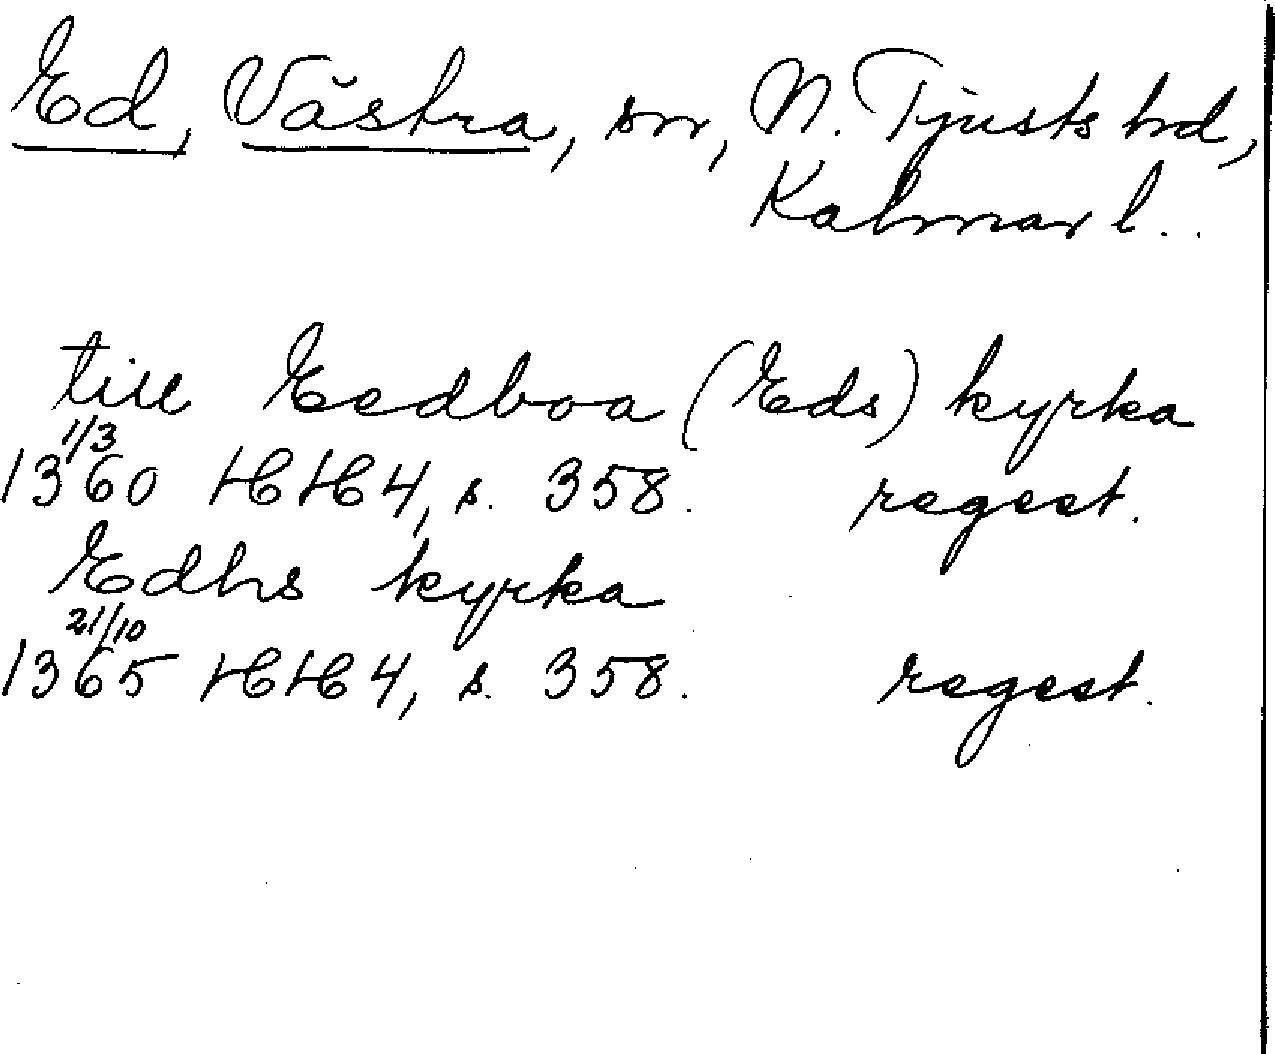 Ed, Västra, sn, N. Tjusts hd,
Kalmar l..
till Eedboa (Eds) kyrka
1/3
1360 HH 4, s. 358. regest.
Edhs kyrka
21/10
1365 HH 4, s. 358. regest.